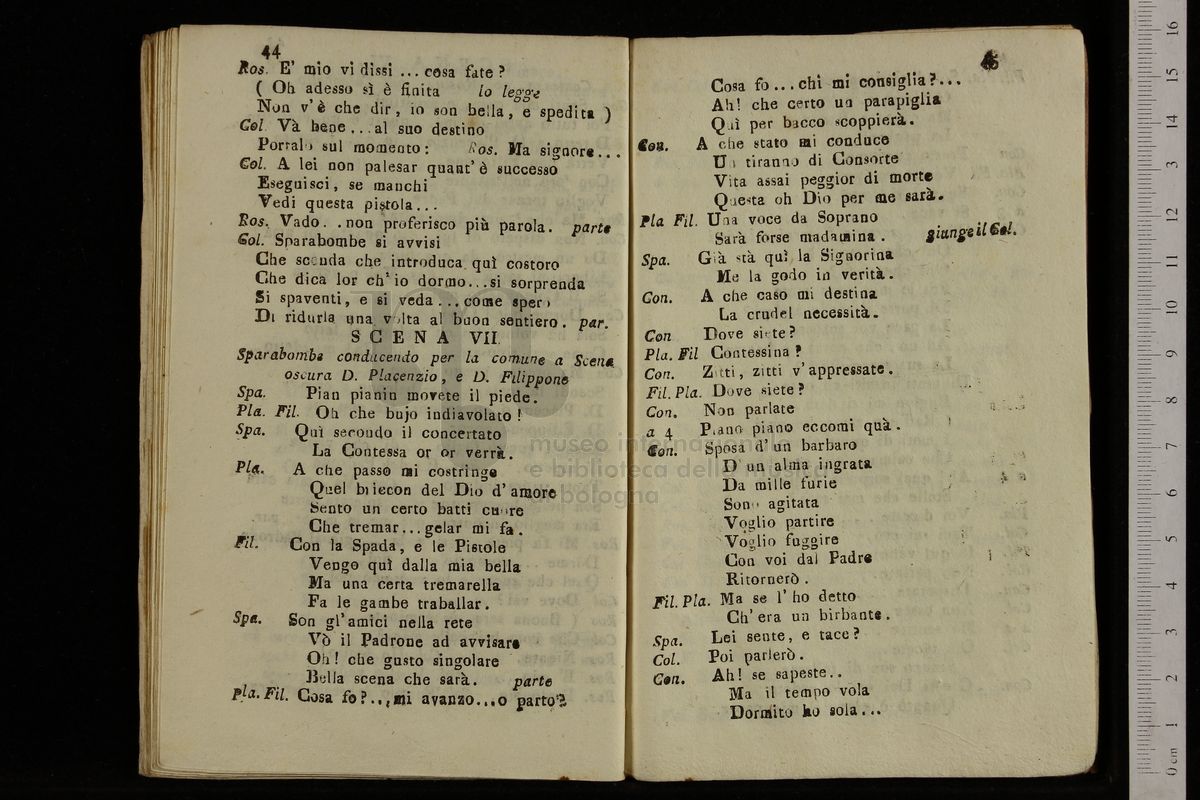 44
Ros. E' mio vi dissi ... cosa fate?
( Oh adesso sì è finita lo legge
Non v'è che dir, io son bella, e spedita )
Col. Và bene ... al suo destino
Portalo sul momento: Ros. Ma signore...
Col. A lei non palesar quant' è successo
Eseguisci, se manchi
Vedi questa pistola...
Ros. Vado. . non proferisco più parola. parte
Col. Sparabombe si avvisi
Che scenda che introduca quì costoro
Che dica lor ch' io dormo...si sorprenda
Si spaventi, e si veda ... come spero
Di ridurla una volta al buon sentiero. par.
SCENA VII.
Sparabombe conducendo per la comune a Scena
oscura D. Placenzio, e D. Filippone
Spa. Pian pianin movete il piede.
Pla. Fil. Oh che bujo indiavolato!
Spa. Quì secondo il concertato
La Contessa or or verrà.
Pla. A che passo mi costringe
Quel briecon del Dio d'amore
Sento un certo batti cuore
Che tremar...gelar mi fa.
Fil. Con la Spada, e le Pistole
Vengo quì dalla mia bella
Ma una certa tremarella
Fa le gambe traballar.
Spa. Son gl'amici nella rete
Vò il Padrone ad avvisare
Oh! che gusto singolare
Bella scena che sarà. parte
Pla. Fil. Cosa fo?...mi avanzo...o parto?
45
Cosa fo...chi mi consiglia?...
Ah! che certo un parapiglia
Quì per bacco scoppierà.
Con. A che stato mi conduce
Un tiranno di Consorte
Vita assai peggior di morte
Questa oh Dio per me sarà.
Pla Fil. Una voce da Soprano
Sarà forse madamina. giunge il Col.
Spa. Già stà quì la Signorina
Me la godo in verità.
Con. A che caso mi destina
La crudel necessità.
Con Dove siete?
Pla. Fil Contessina?
Con. Zitti, zitti v'appressate.
Fil. Pla. Dove siete?
Con. Non parlate
a 4 Piano piano eccomi quà.
Con. Sposa d'un barbaro
D'un alma ingrata
Da mille furie
Sono agitata
Voglio partire
Voglio fuggire
Con voi dal Padre
Ritornerò.
Fil. Pla. Ma se l'ho detto
Ch'era un birbante.
Spa. Lei sente, e tace?
Col. Poi parlerò.
Con. Ah! se sapeste..
Ma il tempo vola
Dormito ho sola...
museo internazionale
e biblioteca della musica
bologna
0 cm 1 2 3 4 5 6 7 8 9 10 11 12 13 14 15 16